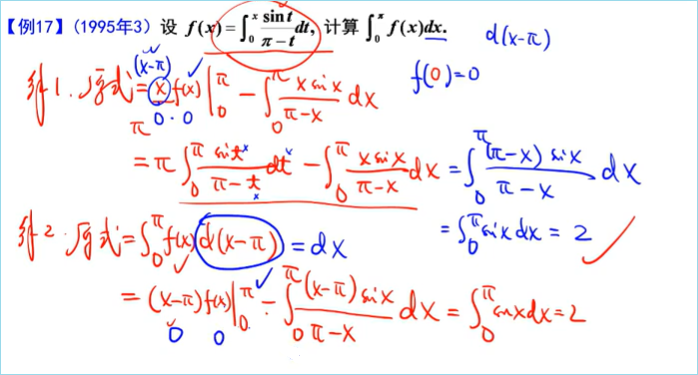 【例17】(1995年3) 设 f(x)=∫₀ˣ sin t/(π−t) dt, 计算 ∫₀^π f(x)dx.
d(x-π)
f(0)=0
(x-π)
解1. 原式=x f(x)|₀^π − ∫₀^π x sin x/(π-x) dx
π 0·0
=π∫₀^π sin t^x/(π-t) dt^x − ∫₀^π x sin x/(π-x) dx = ∫₀^π (π-x) sin x/(π-x) dx
x x
=∫₀^π sin x dx = 2
解2. 原式=∫₀^π f(x) d(x-π) = dx
=(x-π)f(x)|₀^π − ∫₀^π (x-π) sin x/(π-x) dx = ∫₀^π sin x dx = 2
0 0